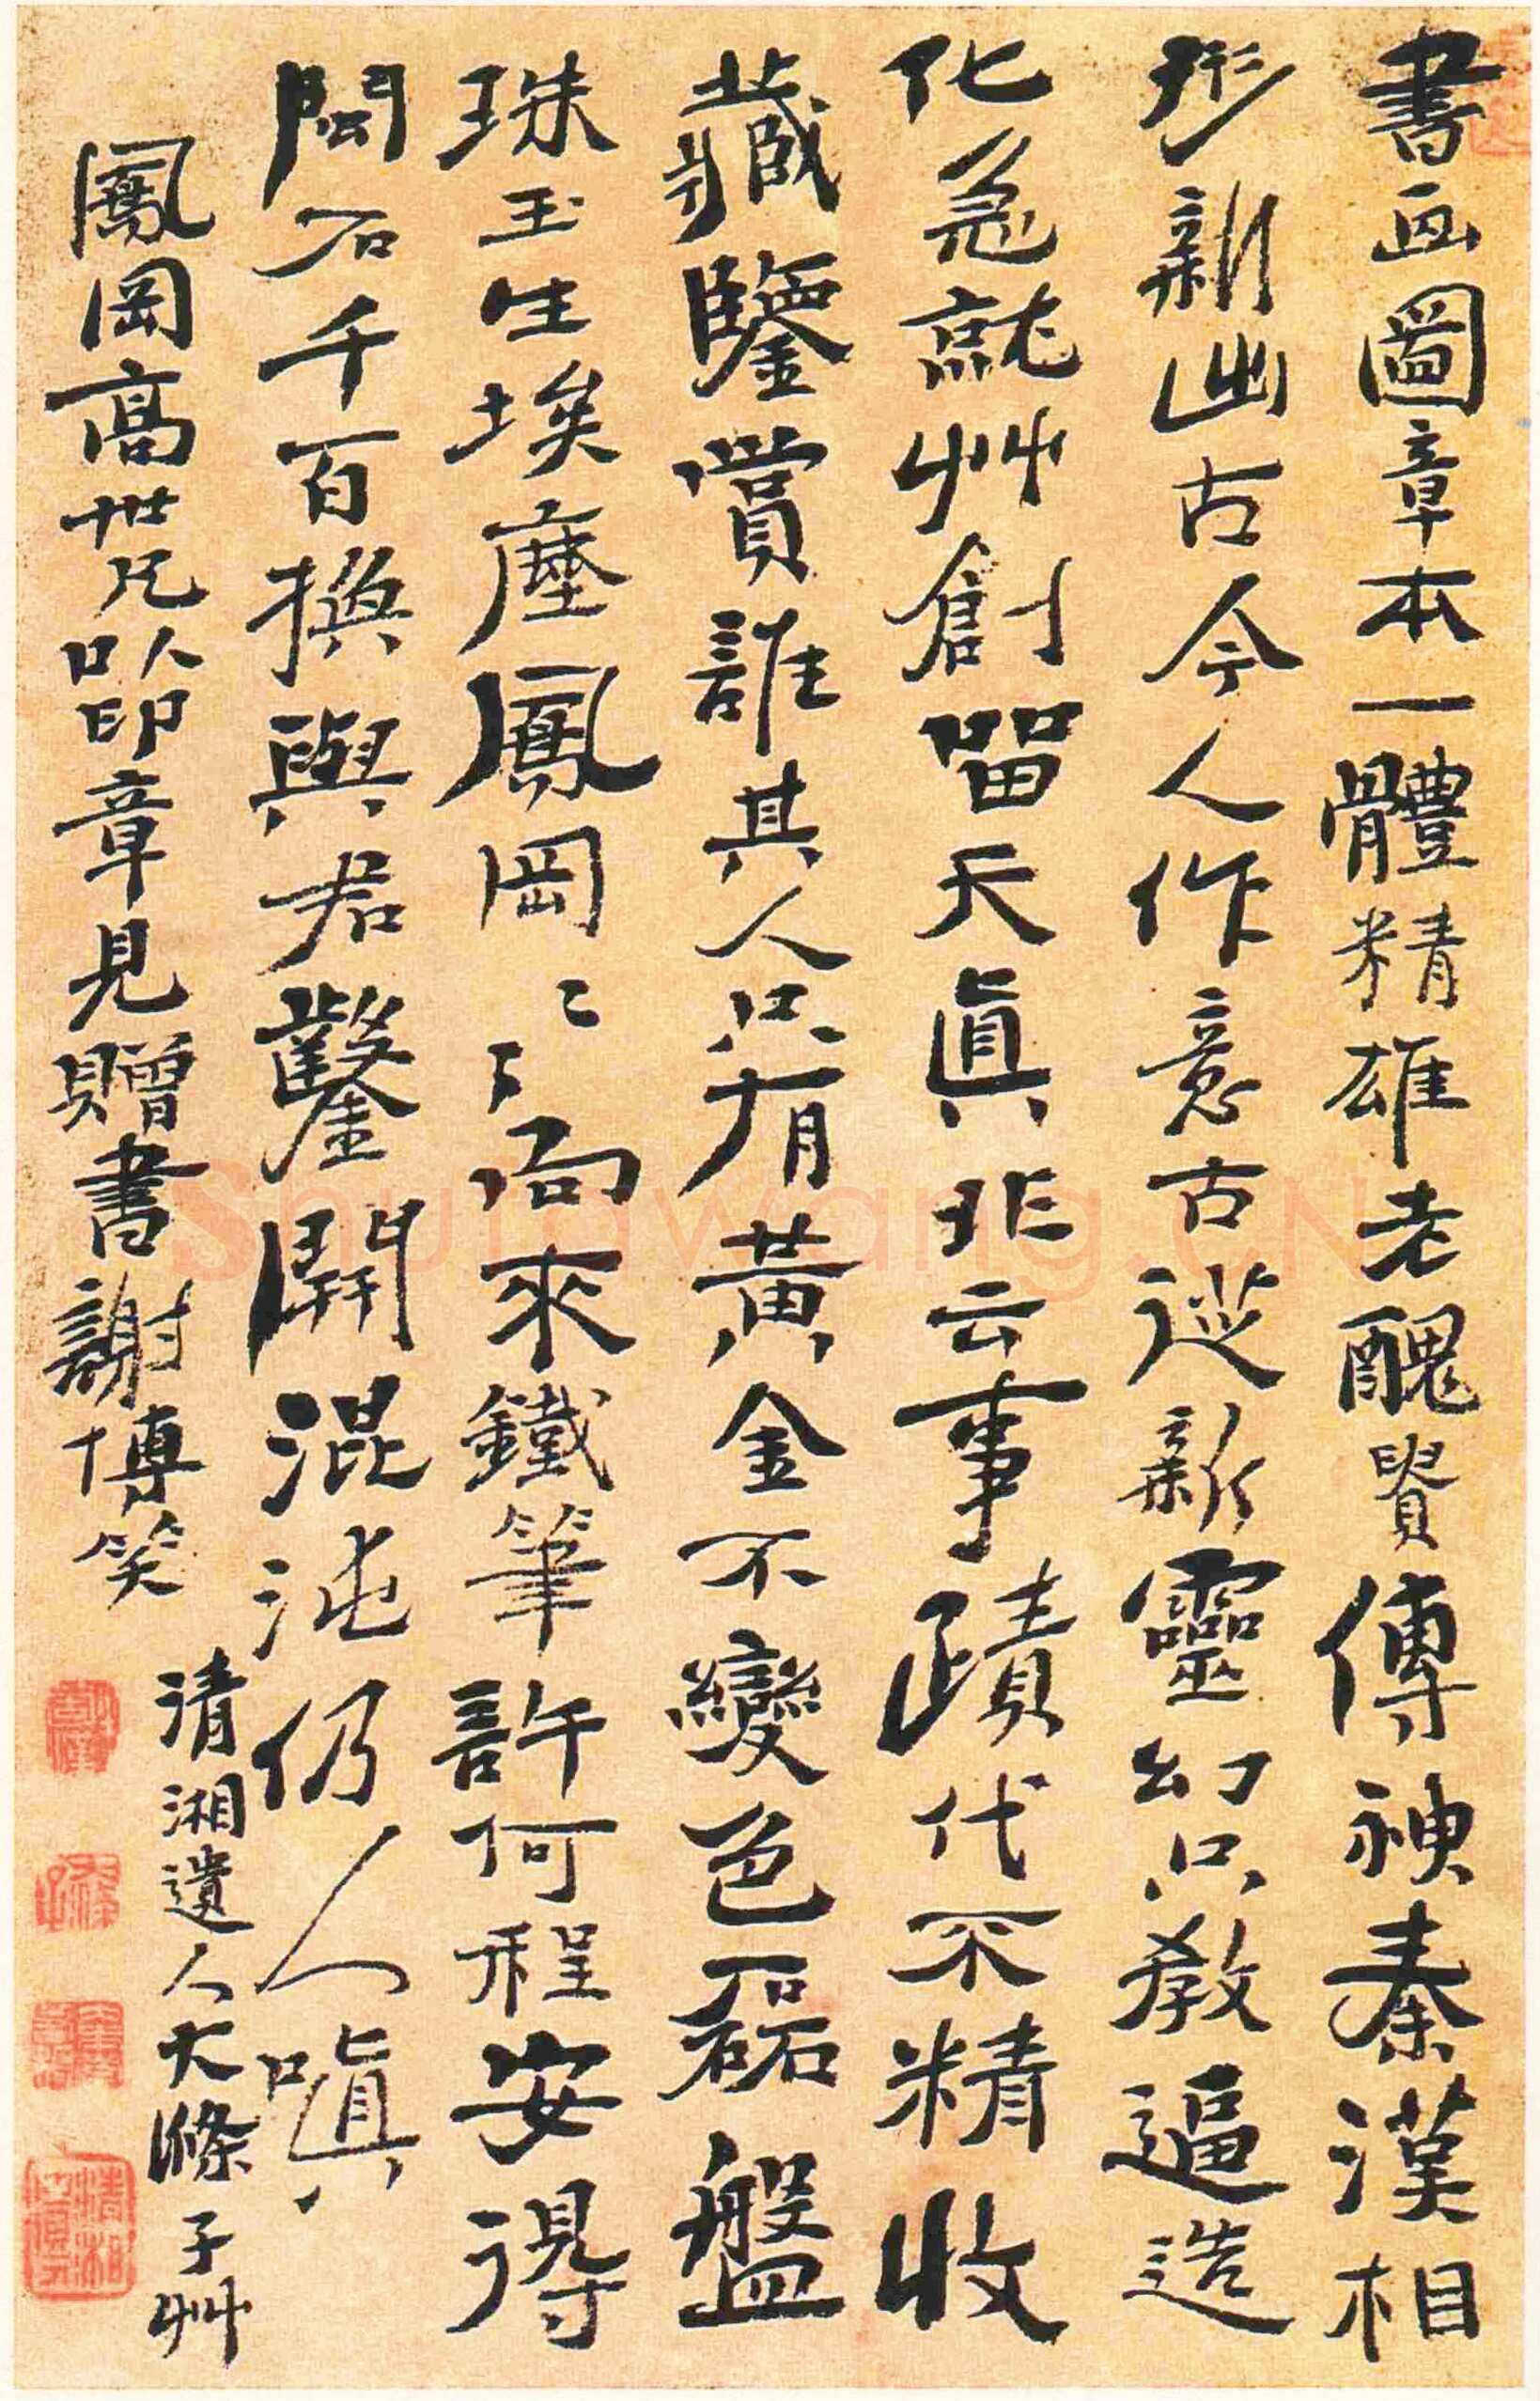 書画圖章本一體精雄老醜貴傳神秦漢相
形新出古今人作意古從新靈幻只教逼造
化急就艸創留天眞非云事蹟代不精收
藏鑒賞誰其人只有黃金不變色磊盤
珠玉生埃塵鳳岡〻〻向來鐵筆許何程安得
閩石千百換與君鑿開混沌仍人嗔
鳳岡高世兄以印章見贈書謝博笑
清湘遺人大滌子艸
Shufawang.CN